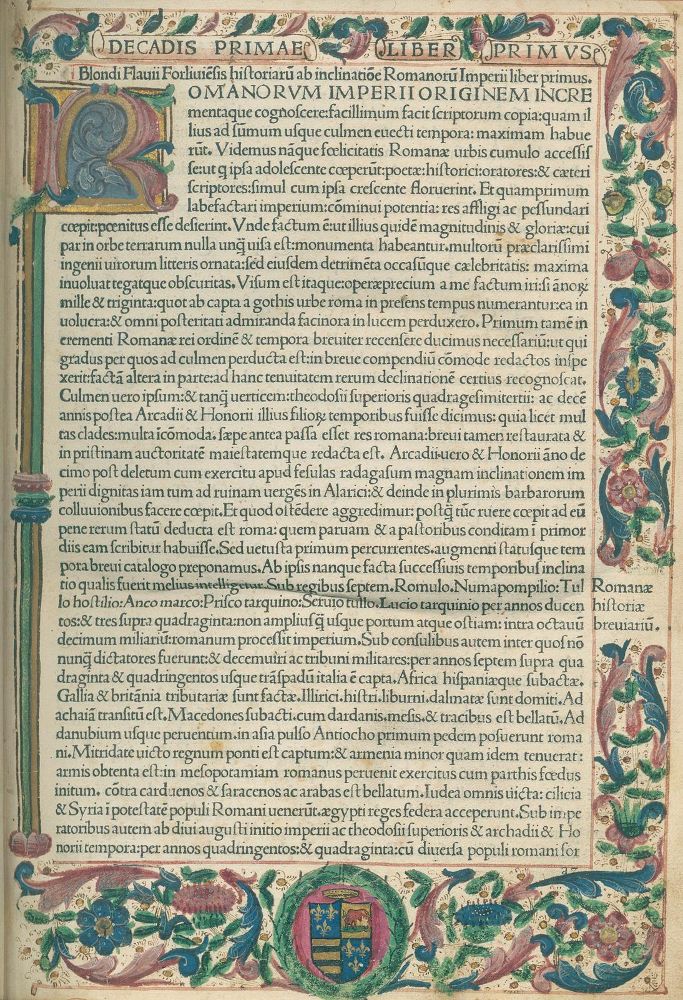 DECADIS PRIMAE LIBER PRIMVS
Blondi Flauii Forliuiēsis historiarū ab inclinatiōe Romanorū Imperii liber primus.
ROMANORVM IMPERII ORIGINEM INCRE
mentaque cognoscere:facillimum facit scriptorum copia:quam il
lius ad sūmum usque culmen euecti tempora: maximam habue
rūt. Videmus nāque fœlicitatis Romanæ urbis cumulo accessis
se:ut q̄ ipsa adolescente cœperūt:poetæ:historici:oratores:& cæteri
scriptores:simul cum ipsa crescente floruerint. Et quamprimum
labefactari imperium:cōminui potentia: res affligi ac pessundari
cœpit:pœnitus esse desierint. Vnde factum ē:ut illius quidē magnitudinis & gloriæ:cui
par in orbe terrarum nulla unq̄ uisa est:monumenta habeantur.multorū præclarissimi
ingenii uirorum litteris ornata:sed eiusdem detrimēta occasūque cælebritatis: maxima
inuoluat tegatque obscuritas. Visum est itaque:operæprecium a me factum iri:si ānoꝝ
mille & triginta:quot ab capta a gothis urbe roma in presens tempus numerantur:ea in
uolucra:& omni posteritati admiranda facinora in lucem perduxero. Primum tamē in
crementi Romanæ rei ordinē & tempora breuiter recensere ducimus necessariū:ut qui
gradus per quos ad culmen perducta est:in breue compendiū cōmode redactos inspe
xerit:factā altera in parte:ad hanc tenuitatem rerum declinationē certius recognoscat.
Culmen uero ipsum:& tanq̄ uerticem:theodosii superioris quadragesimitertii: ac decē
annis postea Arcadii & Honorii illius filioꝝ temporibus fuisse dicimus: quia licet mul
tas clades:multa īcōmoda. sæpe antea passa esset res romana:breui tamen restaurata &
in pristinam auctoritatē maiestatemque redacta est. Arcadii uero & Honorii āno de
cimo post deletum cum exercitu apud fesulas radagasum magnam inclinationem im
perii dignitas iam tum ad ruinam uergēs in Alarici:& deinde in plurimis barbarorum
colluuionibus facere cœpit. Et quod ostēdere aggredimur: postq̄ tūc ruere cœpit ad eū
pene rerum statū deducta est roma: quem paruam & a pastoribus conditam ī primor
diis eam scribitur habuisse. Sed uetusta primum percurrentes.augmenti statusque tem
pora breui catalogo preponamus. Ab ipsis nanque facta successiuis temporibus inclina
tio qualis fuerit melius intelligetur. Sub regibus septem. Romulo. Numapompilio: Tul
lo hostilio: Anco marco: Prisco tarquino: Seruio tullo. Lucio tarquinio per annos ducen
tos:& tres supra quadraginta:non ampliusq̄ usque portum atque ostiam: intra octauū
decimum miliariū:romanum processit imperium. Sub consulibus autem inter quos nō
nunq̄ dictatores fuerunt:& decemuiri ac tribuni militares: per annos septem supra qua
draginta & quadringentos usque trāspadū italia ē capta. Africa hispaniæque subactæ.
Gallia & britānia tributariæ sunt factæ. Illirici. histri. liburni. dalmatæ sunt domiti. Ad
achaiā transitū est. Macedones subacti. cum dardanis. mesis. & tracibus est bellatū. Ad
danubium usque peruentum. in asia pulso Antiocho primum pedem posuerunt roma
ni. Mitridate uicto regnum ponti est captum:& armenia minor quam idem tenuerat:
armis obtenta est:in mesopotamiam romanus peruenit exercitus cum parthis fœdus
initum. cōtra carduenos & saracenos ac arabas est bellatum. Iudea omnis uicta: cilicia
& Syria ī potestatē populi Romani uenerūt. ægypti reges federa acceperunt. Sub impe
ratoribus autem ab diui augusti initio imperii ac theodosii superioris & archadii & Ho
norii tempora: per annos quadringentos:& quadraginta:cū diuersa populi romani for
Romanæ
historiæ
breuiariū.